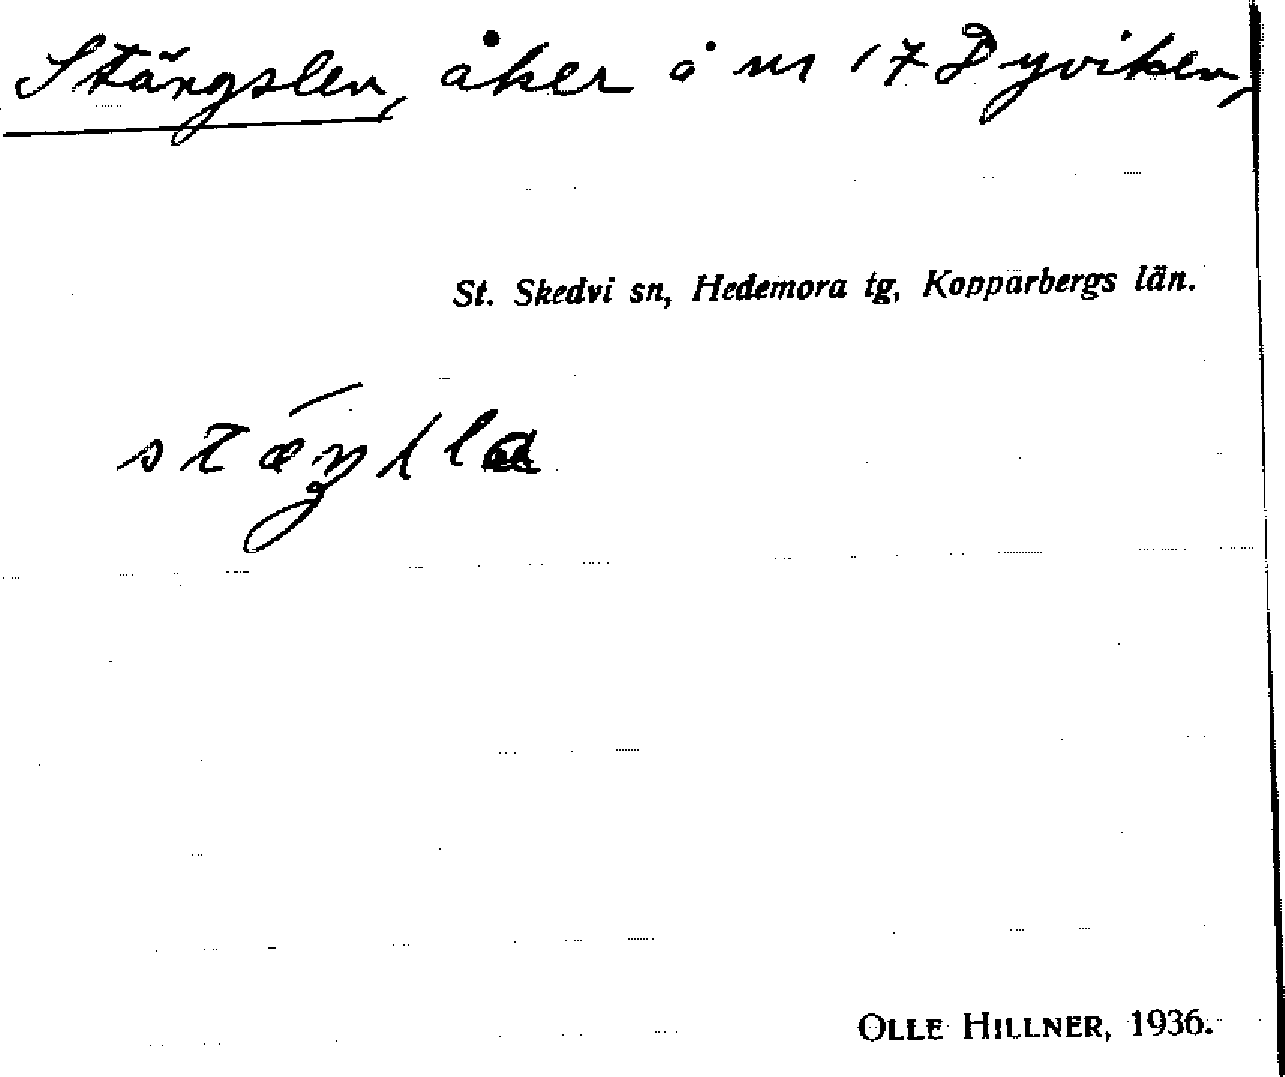 Stängslen, åker å nr 17 Dyviken,
St. Skedvi sn, Hedemora tg, Kopparbergs län.
OLLE HILLNER, 1936.